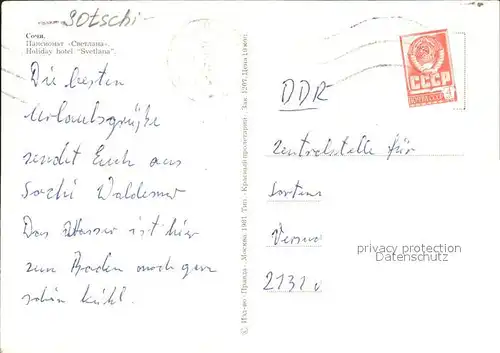 Sotschi-
Сочи.
Пансионат «Светлана».
Holiday hotel "Svetlana".
Die besten
Urlaubsgrüße
sendet Euch aus
Sochi Waldemar
Das Wasser ist hier
zum Baden noch ganz
schön kühl.
© Изд-во «Правда». Москва 1981 Тип. «Красный пролетарий». Зак. 1297. Цена 10 коп.
СССР
DDR
Zentralstelle für
Sorten
privacy protection
Datenschutz